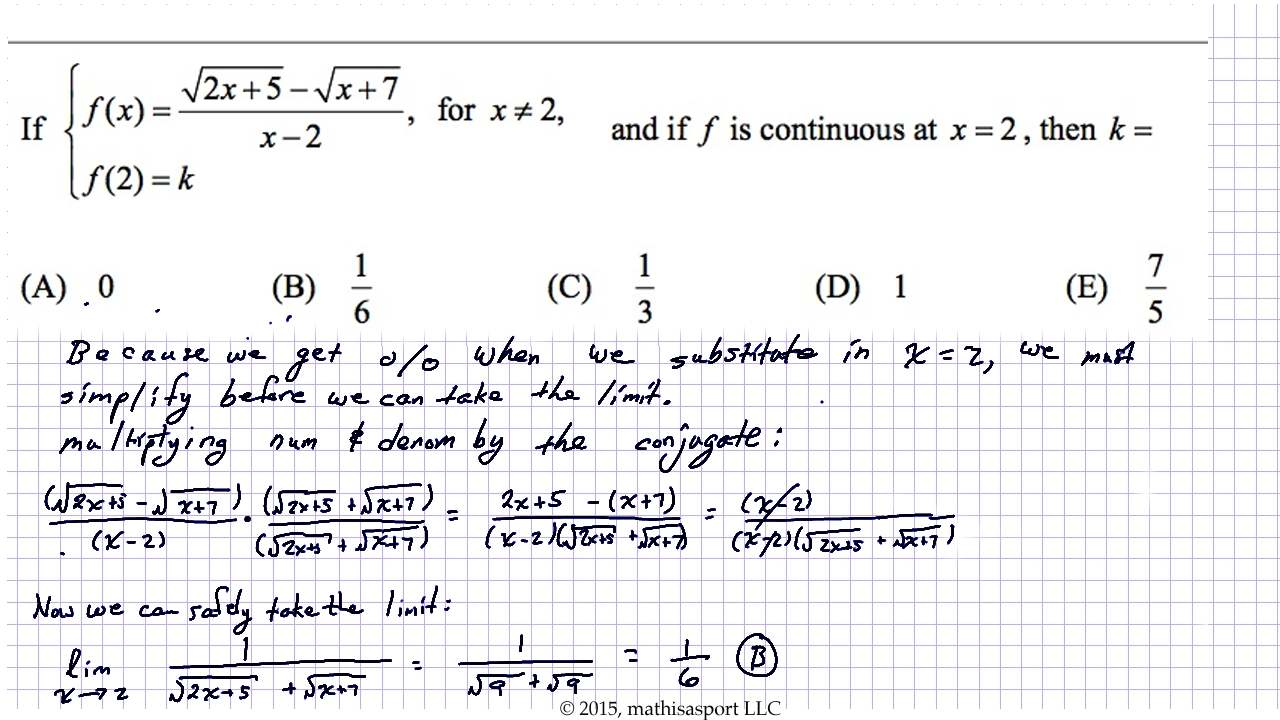 If { f(x) = (√(2x+5) − √(x+7))/(x−2), for x ≠ 2, and if f is continuous at x = 2, then k =
f(2) = k
(A) 0 (B) 1/6 (C) 1/3 (D) 1 (E) 7/5
Because we get 0/0 when we substitute in x = 2, we must
simplify before we can take the limit.
multiplying num & denom by the conjugate:
(√(2x+5) − √(x+7))/(x−2) · (√(2x+5) + √(x+7))/(√(2x+5) + √(x+7)) = (2x+5 − (x+7))/((x−2)(√(2x+5) + √(x+7))) = (x−2)/((x−2)(√(2x+5) + √(x+7)))
Now we can safely take the limit:
lim x→2 1/(√(2x+5) + √(x+7)) = 1/(√9 + √9) = 1/6 (B)
© 2015, mathisasport LLC